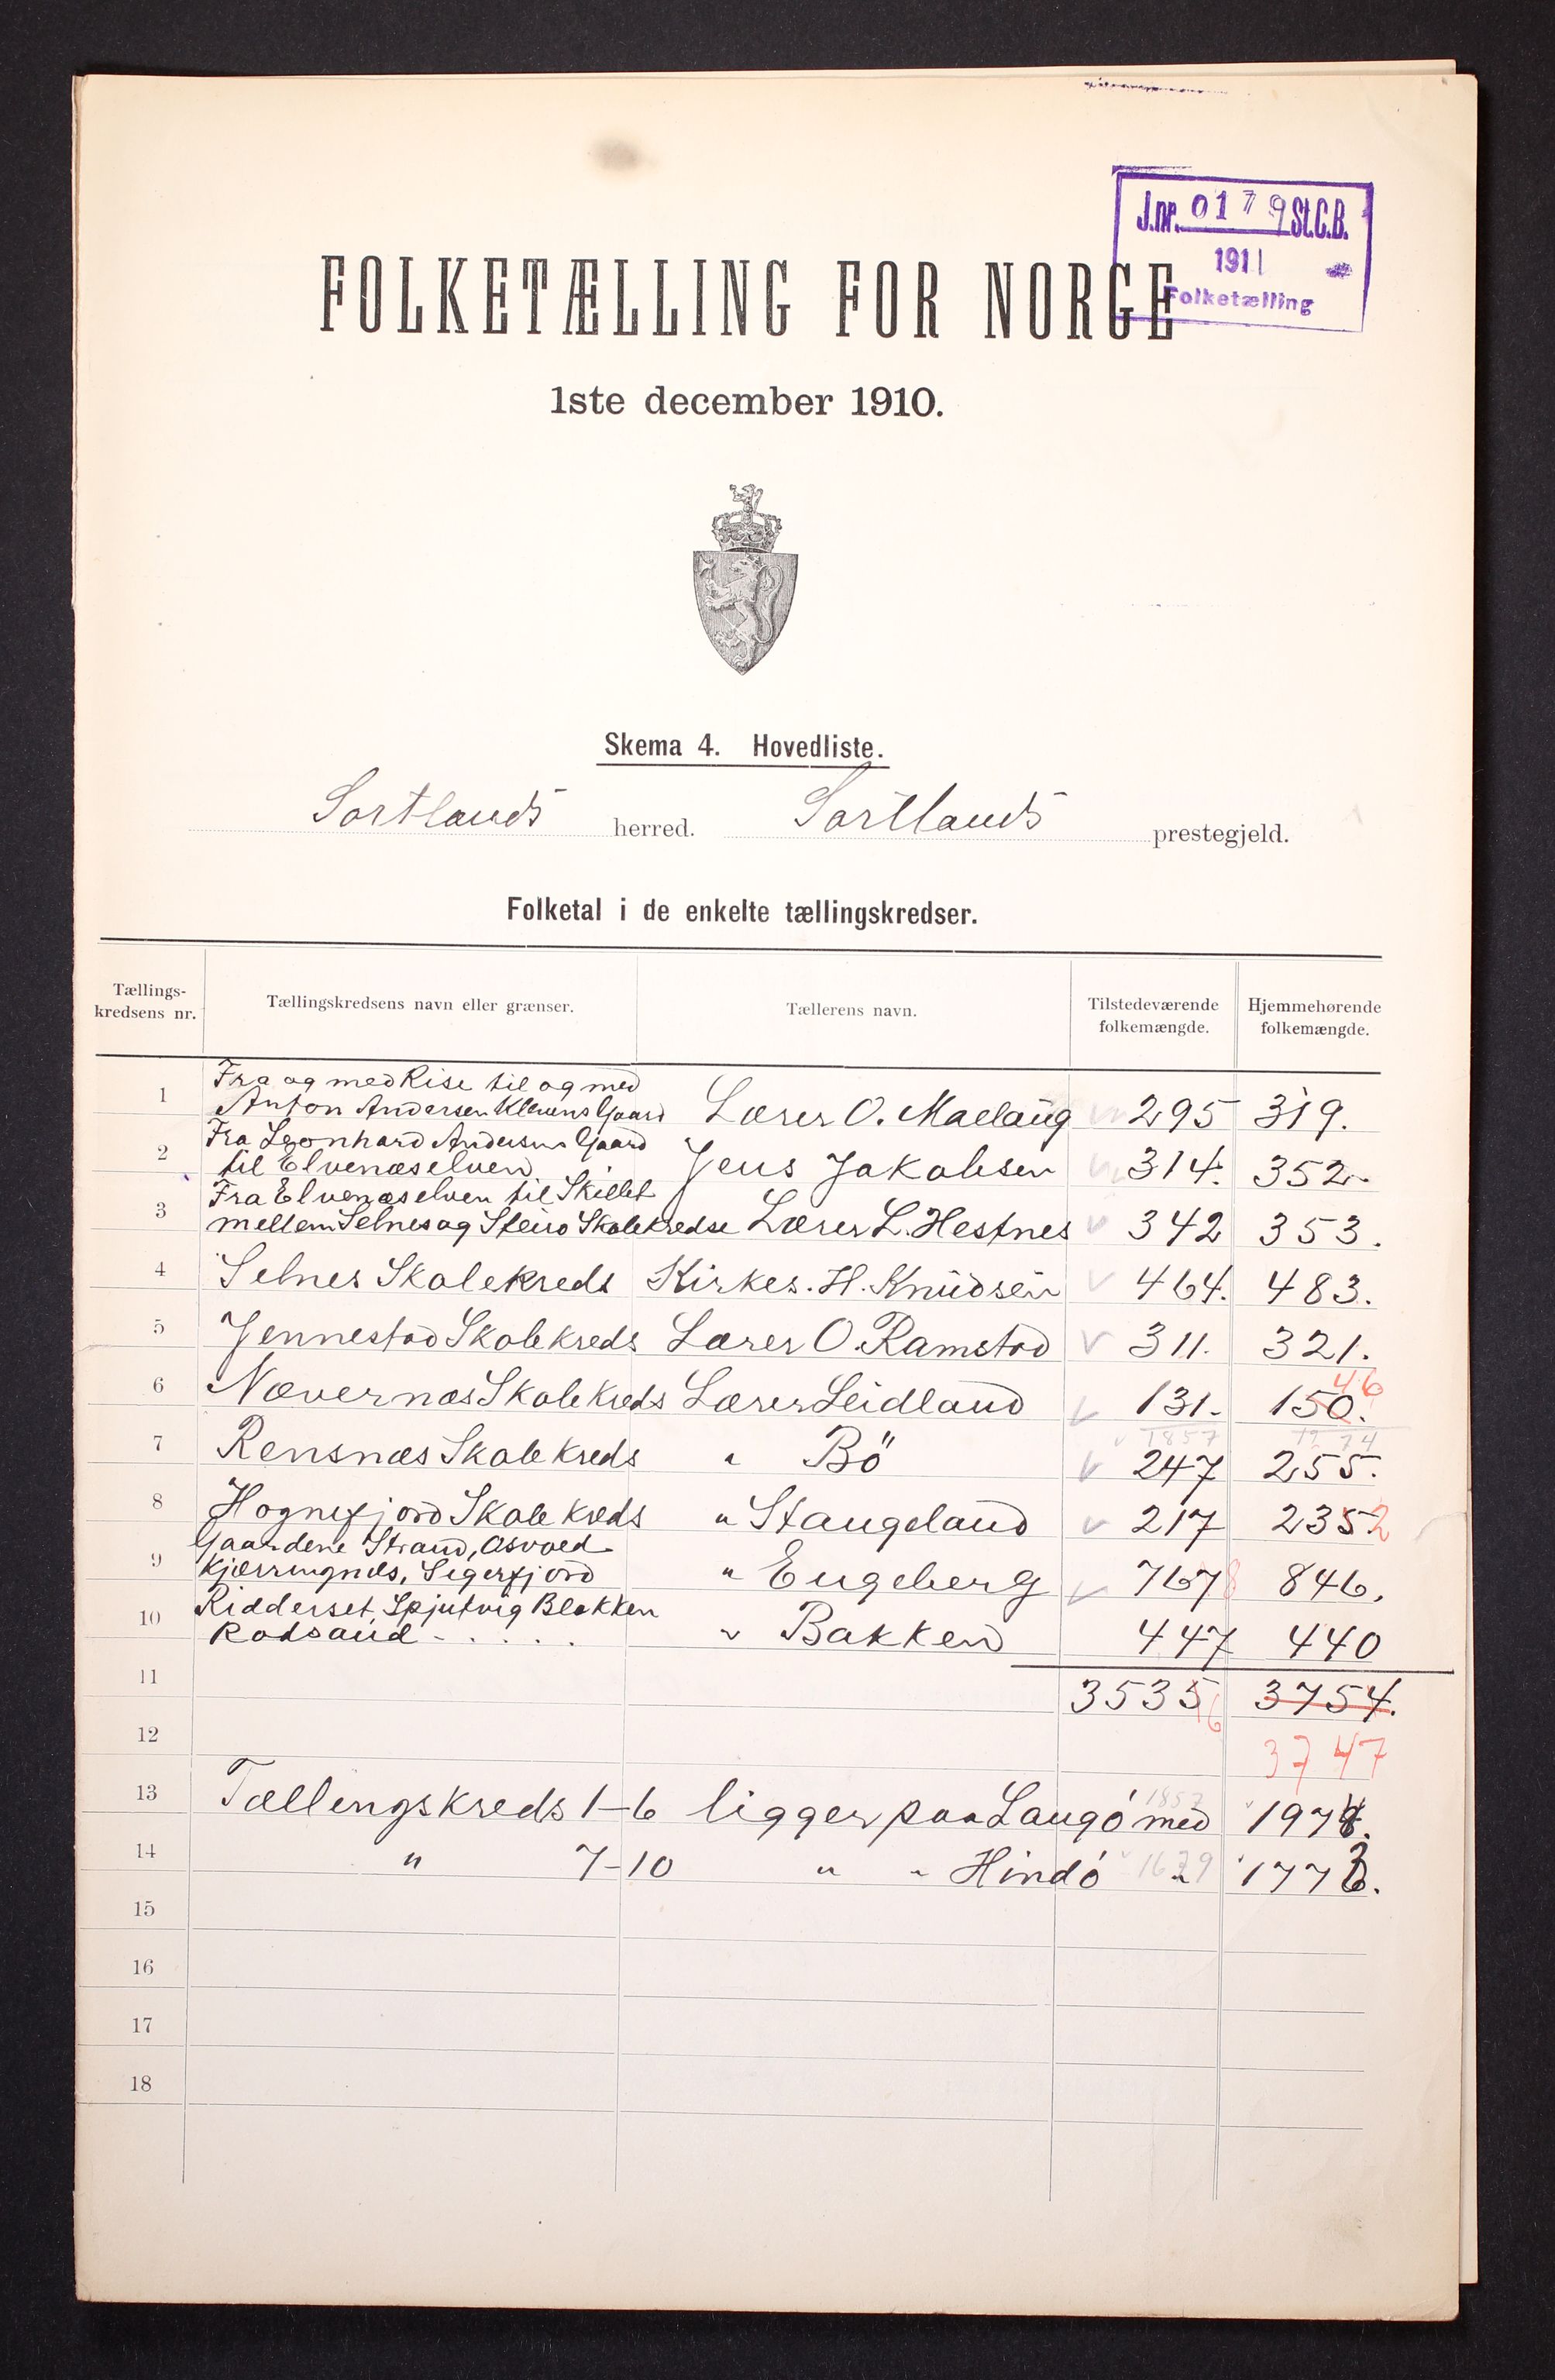 J.nr. 0179 St.C.B.
1911
Folketælling
FOLKETÆLLING FOR NORGE
1ste december 1910.
Skema 4. Hovedliste.
Sortlands herred. Sortlands prestegjeld.
Folketal i de enkelte tællingskredser.
Tællings-kredsens nr. Tællingskredsens navn eller grænser. Tællerens navn. Tilstedeværende folkemængde. Hjemmehørende folkemængde.
Fra og med Rise til og med
1 Anton Andersen Klevens Gaard Lærer O. Maelaug 295 319.
Fra Leonhard Andersens Gaard
2 til Elvenæselven Jens Jakobsen 314. 352.
Fra Elvenæselven til Skillet
3 mellem Selnes og Steiro Skolekredse Lærer L. Hestnes 342 353.
4 Selnes Skolekreds Kirkes. H. Knudsen 464. 483.
5 Jennestad Skolekreds Lærer O. Ramstad 311. 321.
46
6 Nævernæs Skolekreds Lærer Leidland 131. 150.
1857 1974
7 Rensnæs Skolekreds " Bö 247 255.
8 Hognfjord Skolekreds " Stangeland 217 2352
Gaardene Strand, Osvold
9 Kjærringnes, Sigerfjord " Engeberg 7678 846.
Ridderset, Spjutvig Blokken
10 Rodsand - . . . . " Bakken 447 440
11 35356 3754.
12 3747
1857
13 Tællingskreds 1-6 ligger paa Langö med 1974.
14 " 7-10 " " Hindö 1679 " 1773.
15
16
17
18